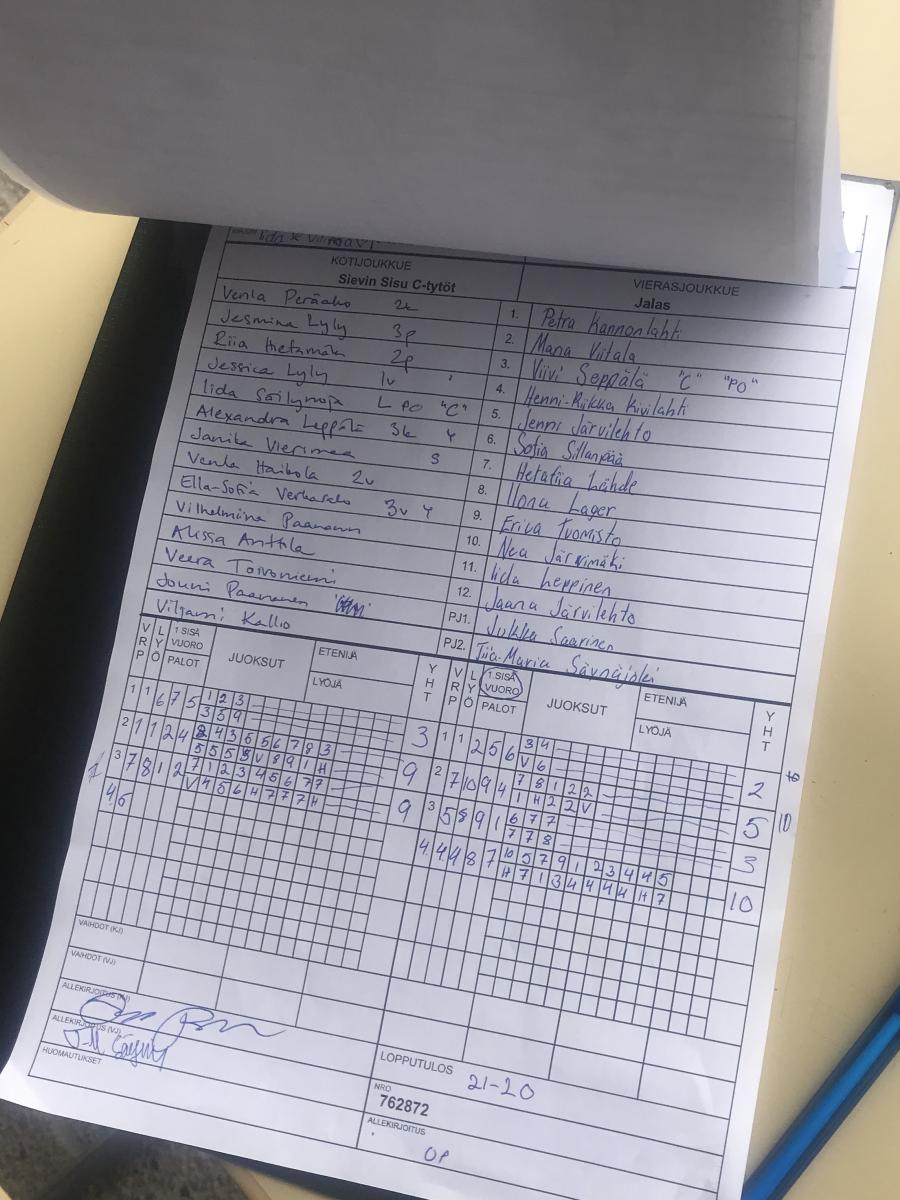 KOTIJOUKKUE VIERASJOUKKUE
Sievin Sisu C-tytöt Jalas
Venla Peräaho 2k 1. Petra Kannonlahti
Jesmina Lyly 3p 2. Viitala
Riia Hietamäki 2p 3. Viivi Seppälä "C" "PO"
Jessica Lyly 1v 4. Henni-Riikka Kivilahti
Iida L PO "C" 5. Jenni Järvilehto
Alexandra Leppälä 3k Y 6. Sofia Sillanpää
Janika Vierimaa S 7. Lähde
Venla Haikola 2v 8. Ilona Lager
Ella-Sofia 3v Y 9. Erica Tuomisto
Vilhelmiina Paananen 10. Nea Järvimäki
Alissa Anttila 11. Iida Leppinen
Veera Toivoniemi 12. Jaana Järvilehto
Jouni Paananen PJ1. Jukka Saarinen
Viljami Kallio PJ2. Tiia-Maria
VRP LYÖ 1 SISÄ VUORO PALOT JUOKSUT ETENIJÄ LYÖJÄ YHT VRP LYÖ 1.SISÄ VUORO PALOT JUOKSUT ETENIJÄ LYÖJÄ YHT
1 1 6 7 5 1 2 3 3 1 1 2 5 6 3 4 2
3 5 9 V 6
2 1 1 2 4 4 3 6 5 6 7 8 3 9 2 7 10 9 4 7 8 1 2 2 5 10
5 5 5 V 8 9 1 H 1 H 2 2 V
3 7 8 1 2 7 1 2 3 4 5 6 7 7 9 3 5 8 9 1 6 7 7 3
V 4 5 6 H 7 7 7 H 7 7 8
4 6 4 4 4 8 7 10 5 7 9 1 2 3 4 4 5 10
H 7 1 3 4 4 4 4 H 7
VAIHDOT (KJ)
VAIHDOT (VJ)
ALLEKIRJOITUS (KJ)
ALLEKIRJOITUS (VJ)
HUOMAUTUKSET
LOPPUTULOS 21-20
NRO
762872
ALLEKIRJOITUS
OP